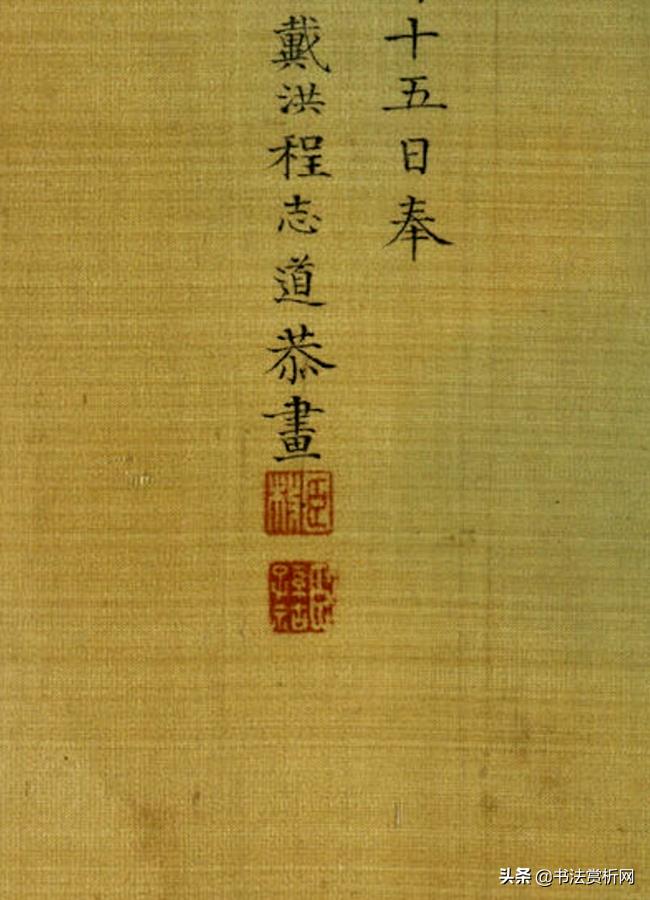 十五日奉
戴洪程志道恭畫
头条 @书法赏析网